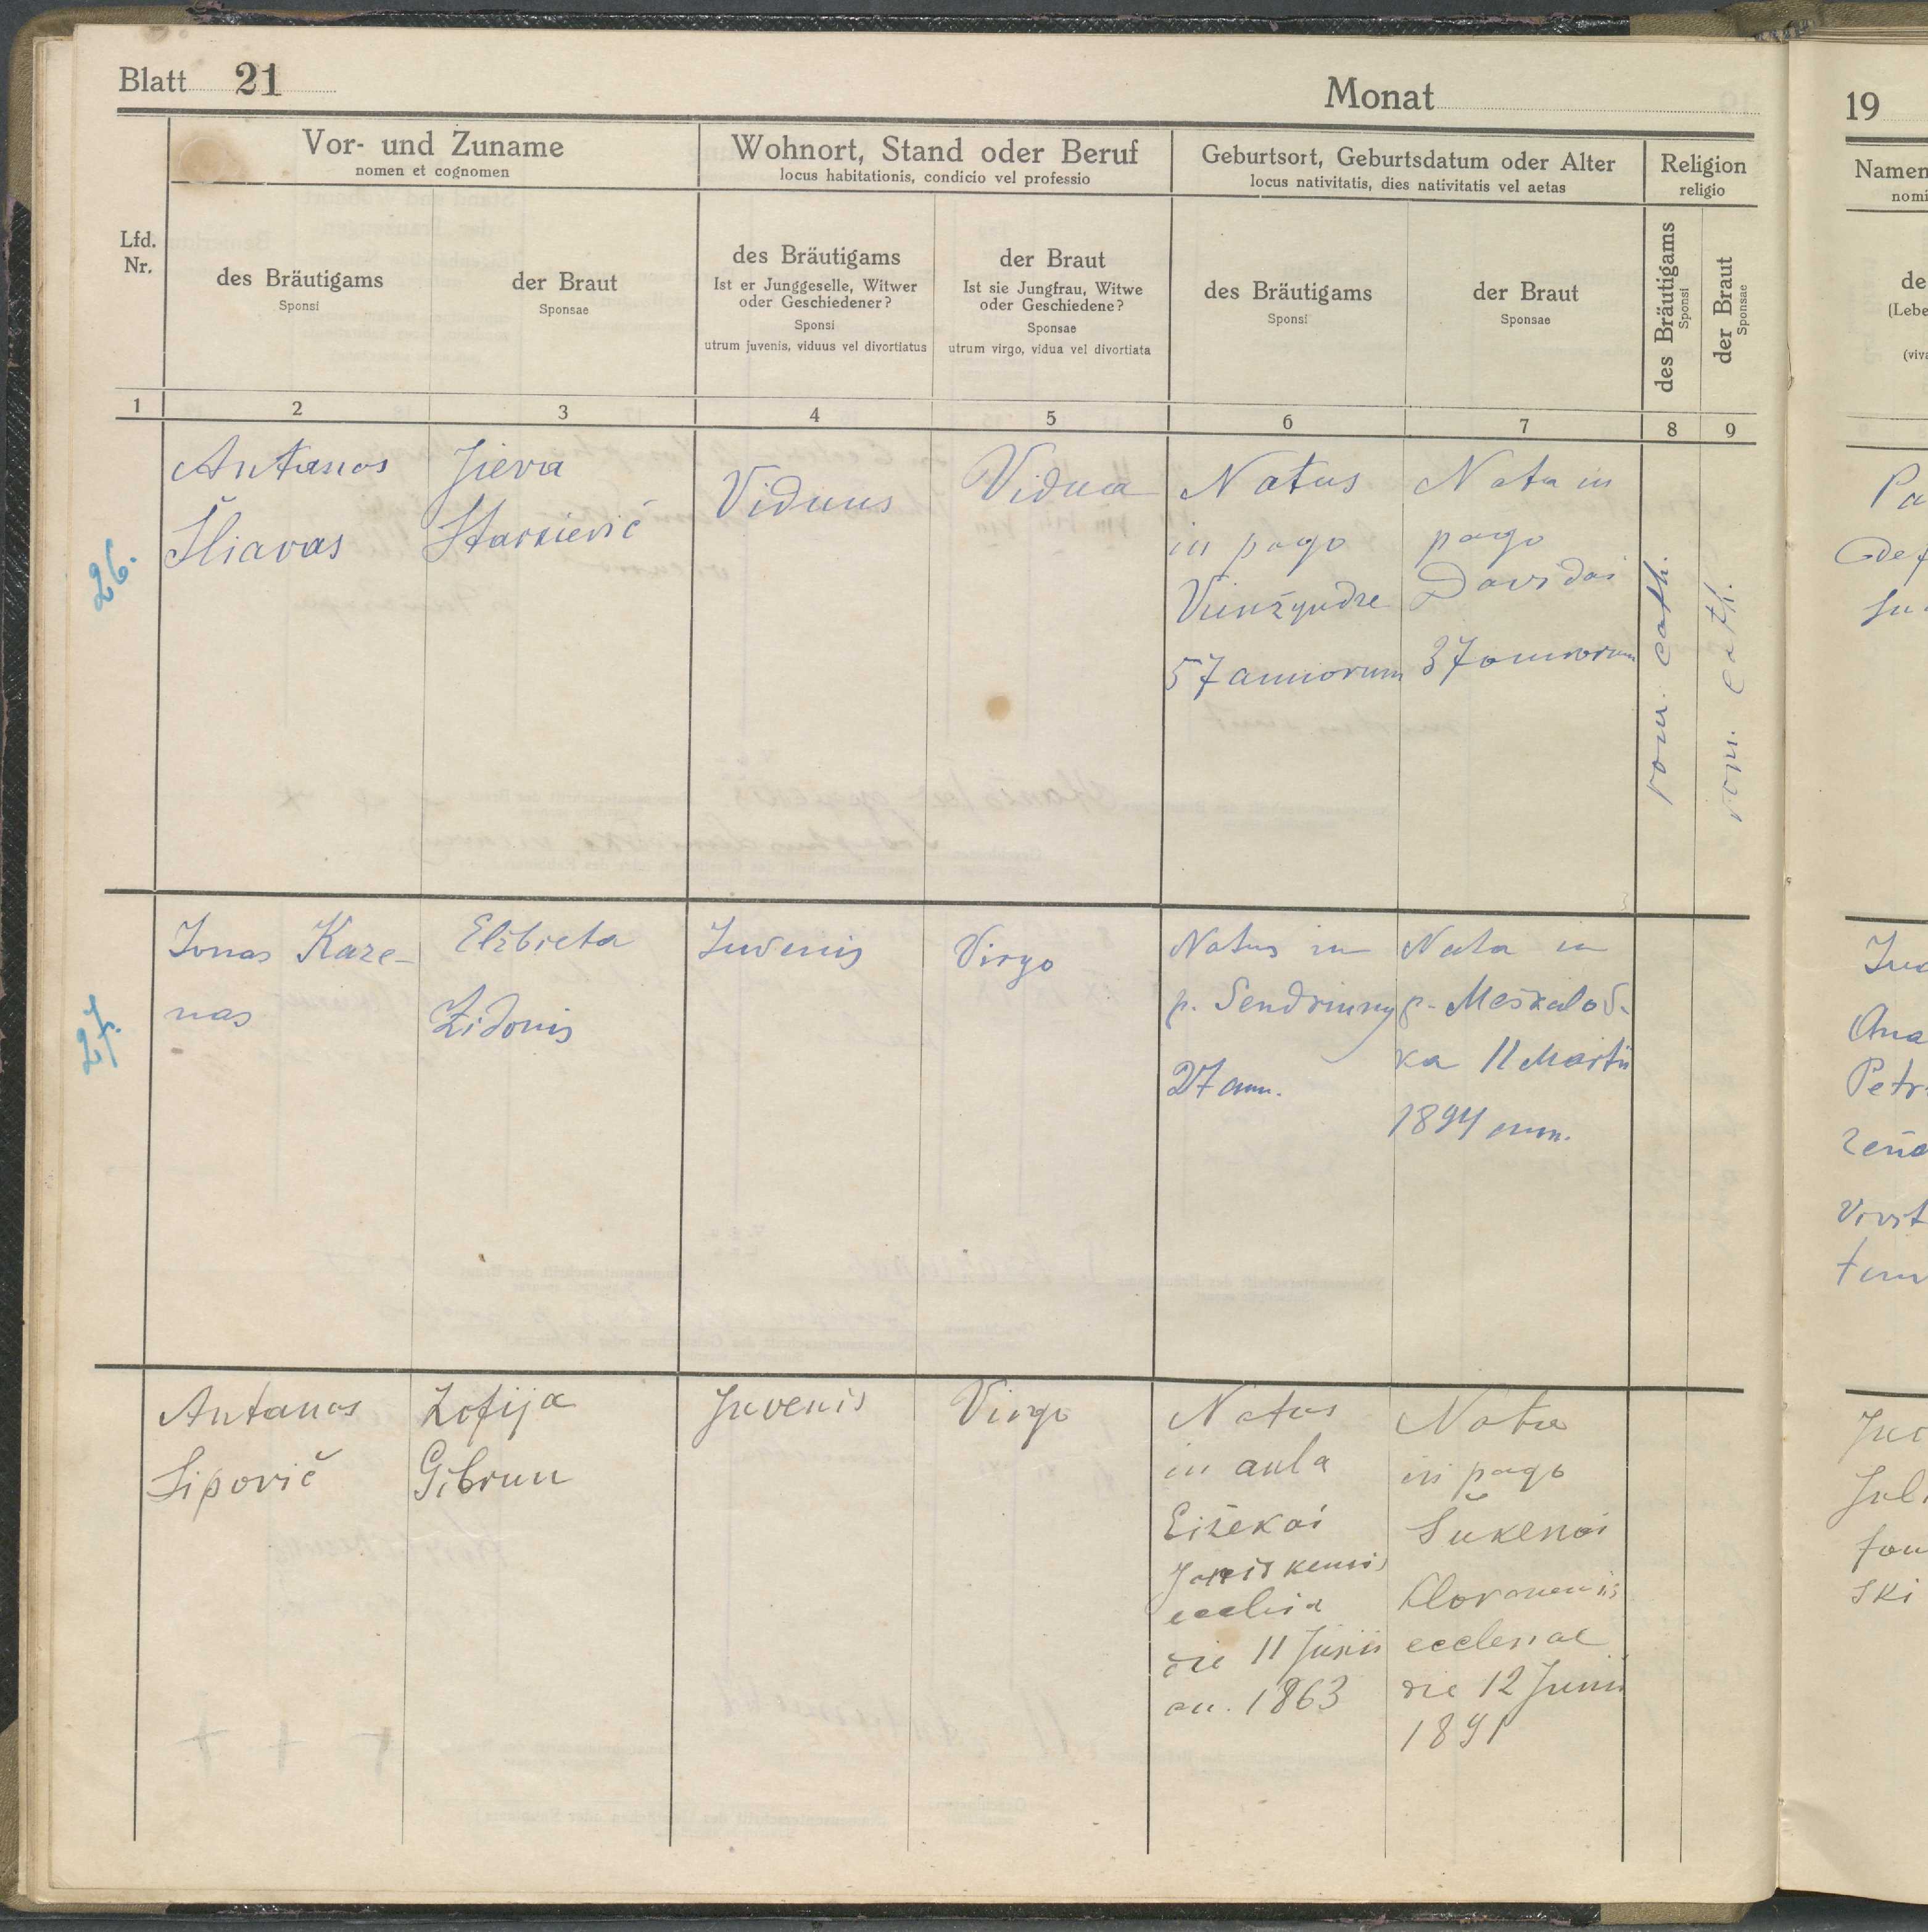 Blatt 21
Monat
19
Vor- und Zuname
nomen et cognomen
Wohnort, Stand oder Beruf
locus habitationis, condicio vel professio
Geburtsort, Geburtsdatum oder Alter
locus nativitatis, dies nativitatis vel aetas
Religion
religio
Namen
nomi
Lfd.
Nr.
des Bräutigams
Sponsi
der Braut
Sponsae
des Bräutigams
Ist er Junggeselle, Witwer
oder Geschiedener?
Sponsi
utrum juvenis, viduus vel divortiatus
der Braut
Ist sie Jungfrau, Witwe
oder Geschiedene?
Sponsae
utrum virgo, vidua vel divortiata
des Bräutigams
Sponsi
der Braut
Sponsae
des Bräutigams
Sponsi
der Braut
Sponsae
de
(Lebe
(viva
1 2 3 4 5 6 7 8 9
26.
Antanas
Šliavas
Jieva
Starkievič
Viduus
Vidua
Natus
in pago
Vienžyndze
57 annorum
Nata in
pago
Davidai
37 annorum
rom. cath.
rom. cath.
Pa
27.
Jonas Kaze-
nas
Elžbieta
Židonis
Juvenis
Virgo
Natus in
p. Sendriuny
27 ann.
Nata in
p. Meškalos-
ka 11 Martii
1894 ann.
Ana
Petr
Antanas
Lipovič
Zofija
Gibrun
Juvenis
Virgo
Natus
in aula
Eižekai
die 11 Junii
an. 1863
Nata
in pago
Šukenai
ecclesiae
die 12 Junii
1891
ski